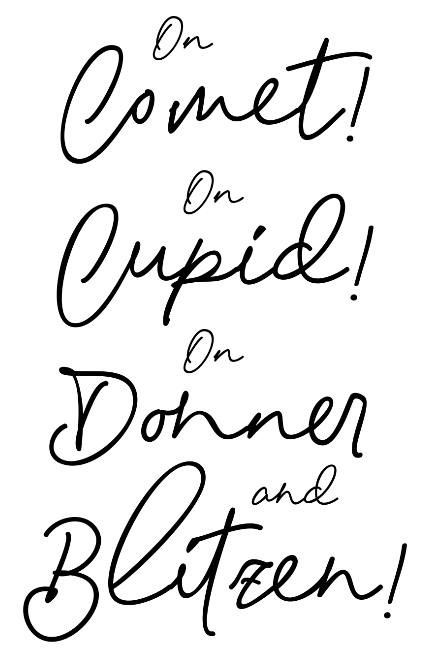 On
Comet!
On
Cupid!
On
Donner
and
Blitzen!